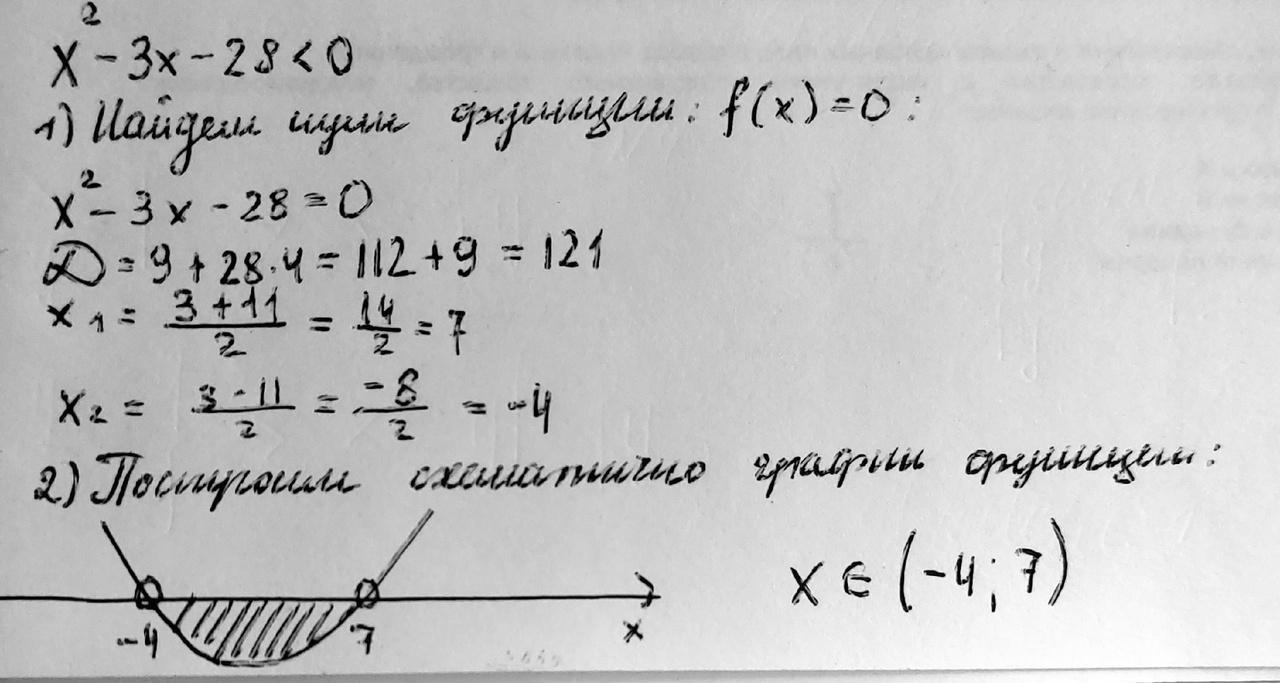 x² - 3x - 28 < 0
1) Найдем нули функции: f(x) = 0:
x² - 3x - 28 = 0
D = 9 + 28·4 = 112 + 9 = 121
x₁ = (3 + 11)/2 = 14/2 = 7
x₂ = (3 - 11)/2 = -8/2 = -4
2) Построим схематично график функции:
x ∈ (-4; 7)
-4 7 x